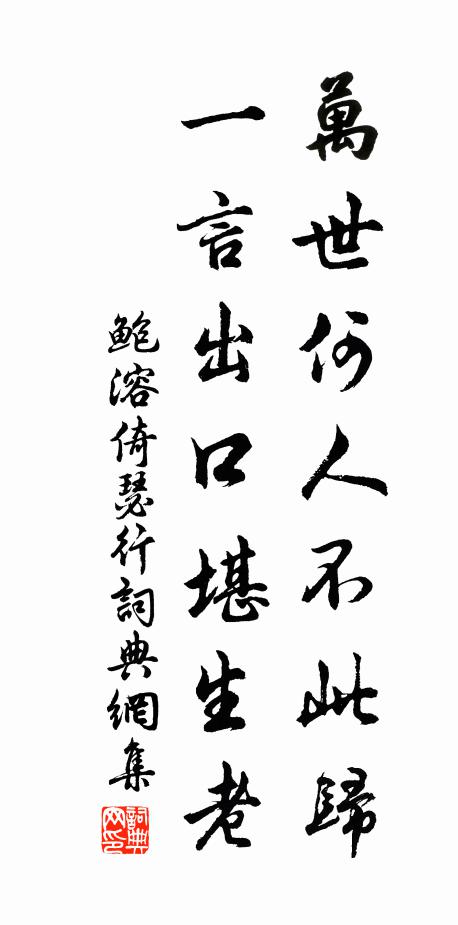 萬世何人不此歸
一言出口堪生老
鮑溶倚瑟行詞典網集
詞典网印